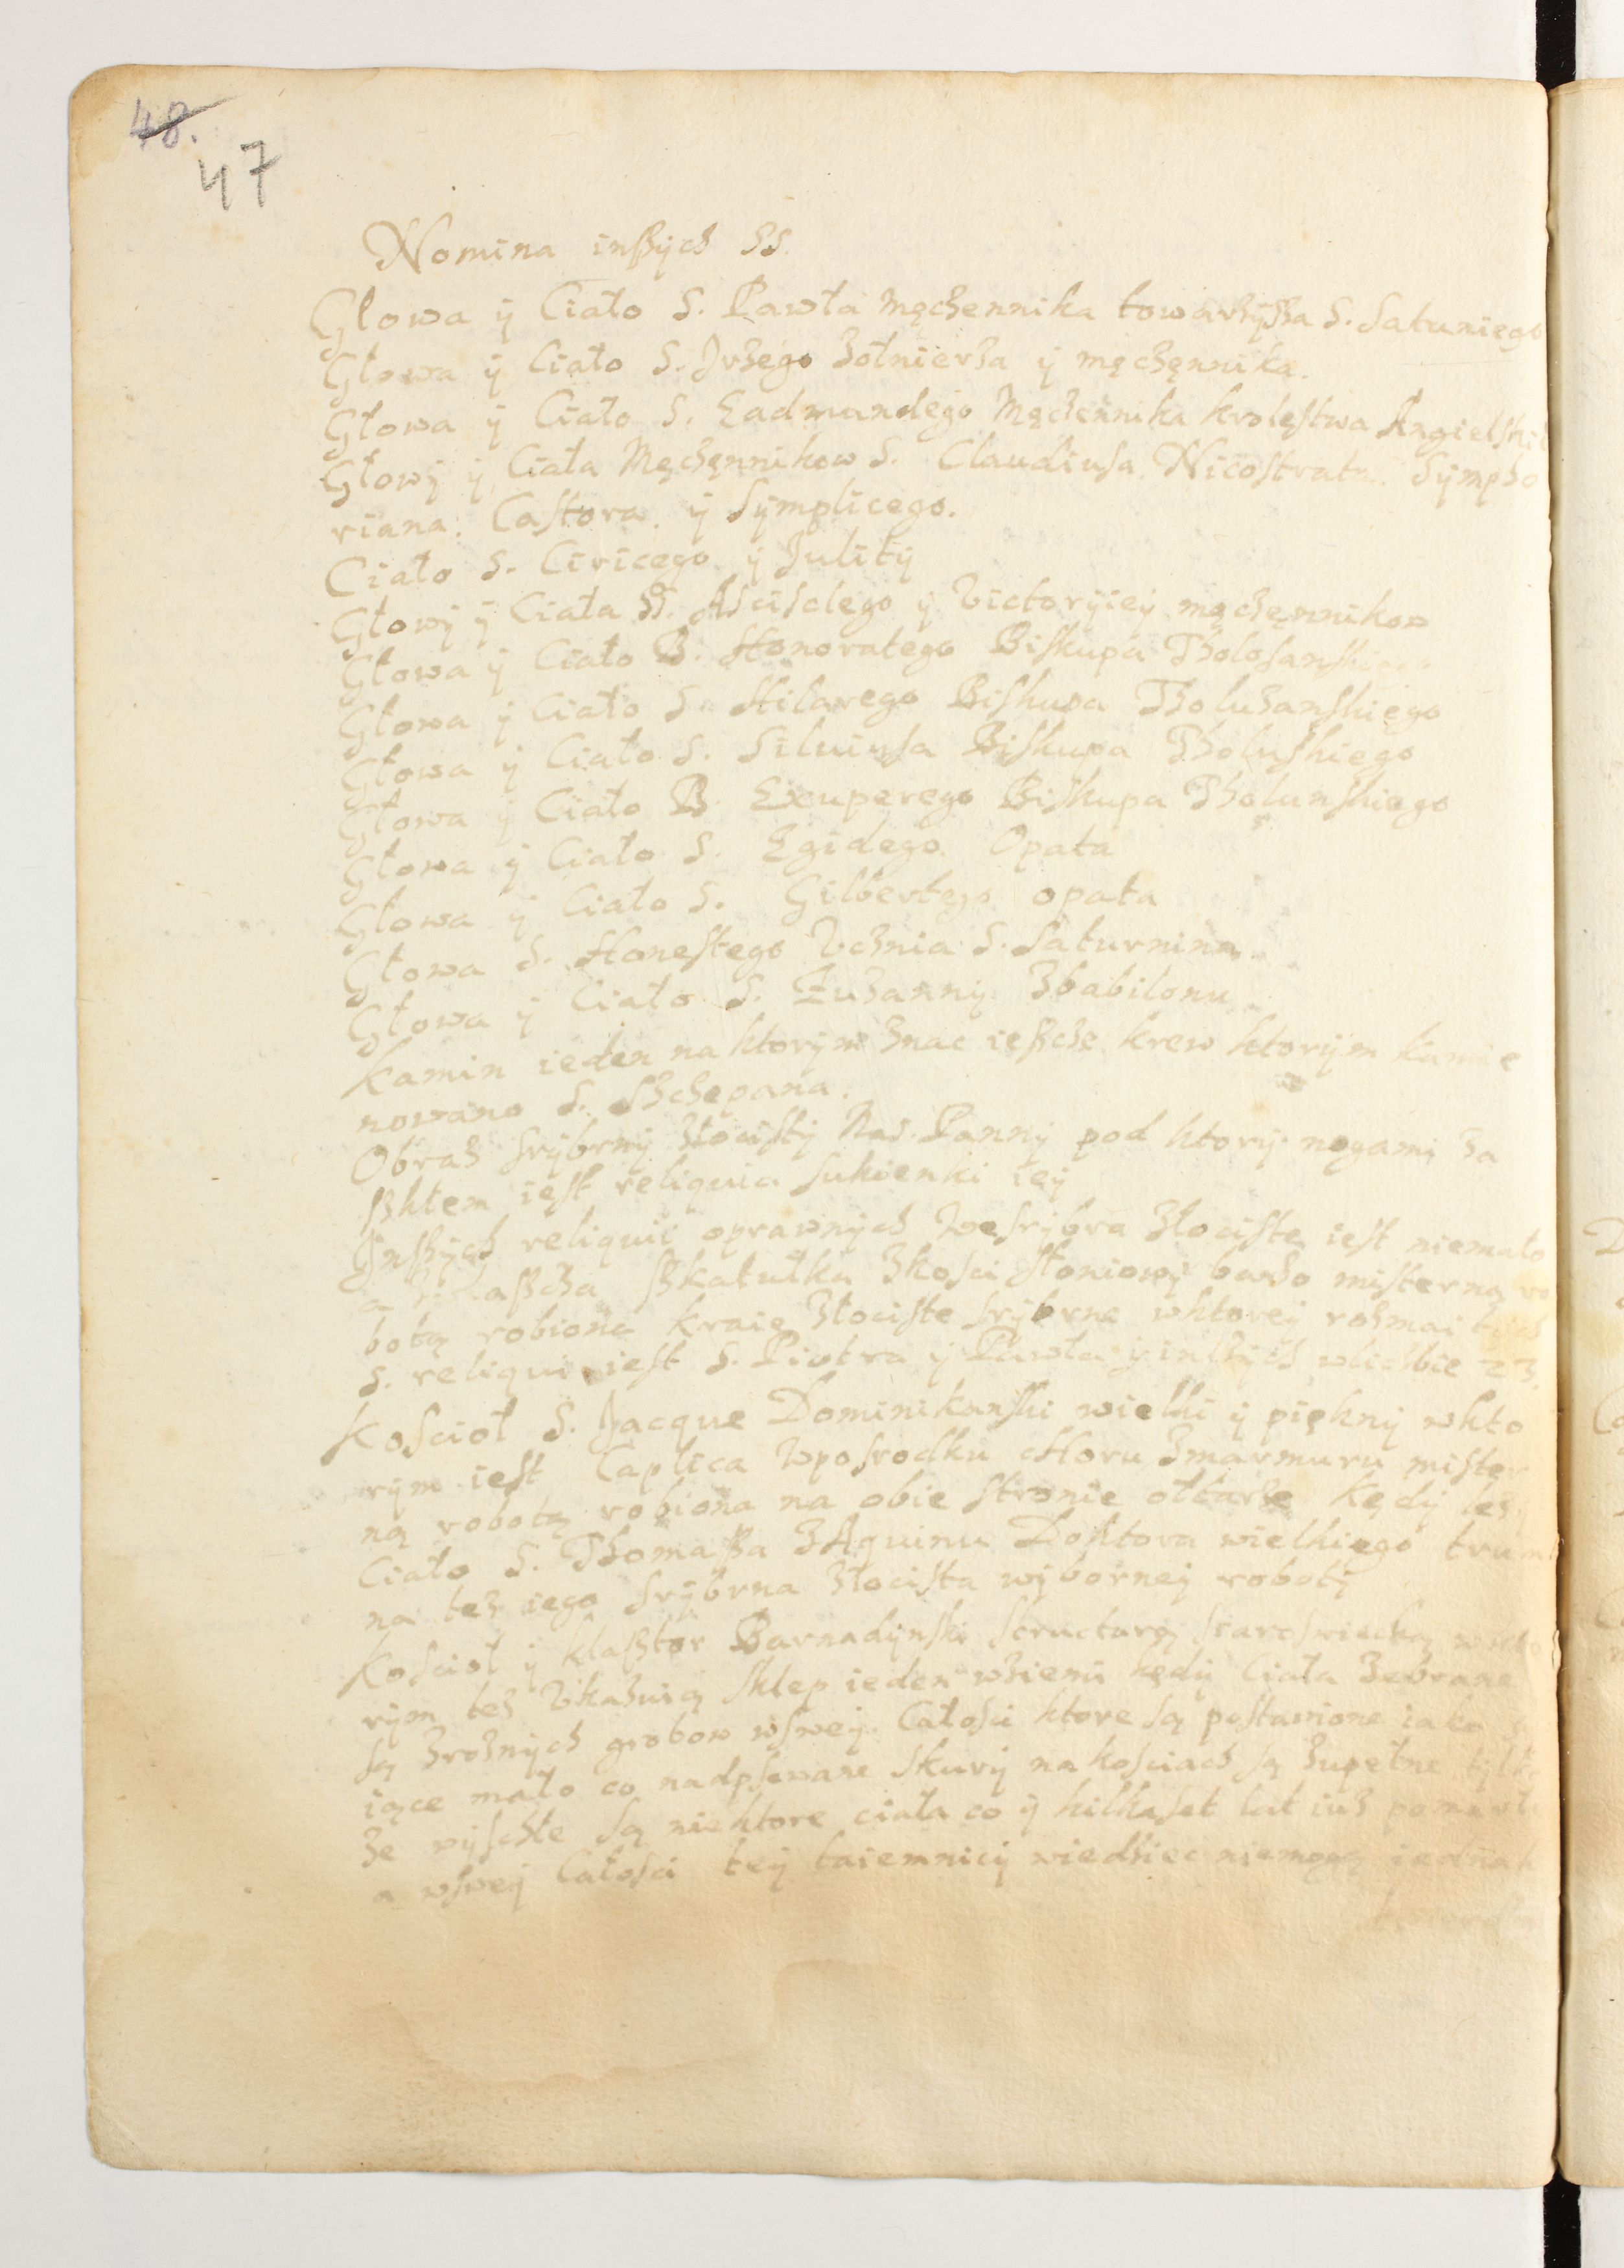 48.
47
Nomina inßÿch SS.
Głowa ÿ Ciało S. Pawła męczennika towarzÿsza S. Saturniego
Głowa ÿ Ciało S. Jrzego żołnierza ÿ męczęnnika.
Głowa ÿ Ciało S. Eadmundego Męczennika krolęstwa Angielski
Głowÿ ÿ Ciała Męczęnnikow S. Claudiusa Nicostrata. Sÿmpho
riana. Castora. ÿ Sÿmplicego.
Ciało S. Ciricego ÿ Julitÿ
Głowÿ ÿ Ciała SS. Asciselego ÿ Victorÿieÿ męczęnnikow
Głowa ÿ Ciało B. Honoratego Biskupa Tholosanskiego
Głowa ÿ Ciało S. Hilarego Biskupa Tholuzanskięgo
Głowa ÿ Ciało S. Siluiusa Biskupa Tholuskiego
Głowa ÿ Ciało B. Exuperego Biskupa Tholunskiego
Głowa ÿ Ciało S. Egidego Opata
Głowa ÿ Ciało S. Gilbertego opata
Głowa S. Honestego Vcznia S. Saturnina
Głowa ÿ Ciało S. Zuzannÿ zbabilonu
Kamin ieden na ktorÿm znac ießcze krew ktorÿm kamie
nowano S. Szczepana.
Obraz srÿbrnÿ złocistÿ Nas. Pannÿ pod ktorÿ nogami za
szkłem iest reliquia sukienki ieÿ
Jnßÿch reliquii oprawnÿch wesrÿbra złociste iest niemało
a ßkatułka zkosci słoniowÿ barzo misterną ro
botą robioná kraie złociste srÿbrne wktoreÿ rozmaitÿch
S. reliqui iest S. Piotra ÿ Pawła ÿ inßÿch wliczbie 23.
Koscioł S. Jacque Dominikanski wielki ÿ pięknÿ wkto
rÿm iest Caplica wposrodku choru zmarmuru mister
ną robotą robiona na obie stronie ołtarze kędÿ lezÿ
Ciało S. Thomaßa zAquinu Doktora wielkiego trum
na tez iego srÿbrna złocista wÿborneÿ robotÿ
Koscioł ÿ klaßtor Barnadÿnski structurą staroswiecką wkto
rÿm tez vkazuią sklep ieden wziemi kędÿ Ciała zebrane
są zroznÿch grobow wsweÿ Całosci ktore są postawione iako
iące mało co nadpsowane skurÿ na kosciach są zupełne tÿlko
ze wÿschłe są niektore ciała co ÿ kilkaset lat iuz pomarłÿ
a wsweÿ Całosci teÿ taiemnicÿ wiedziec niemogą iednak